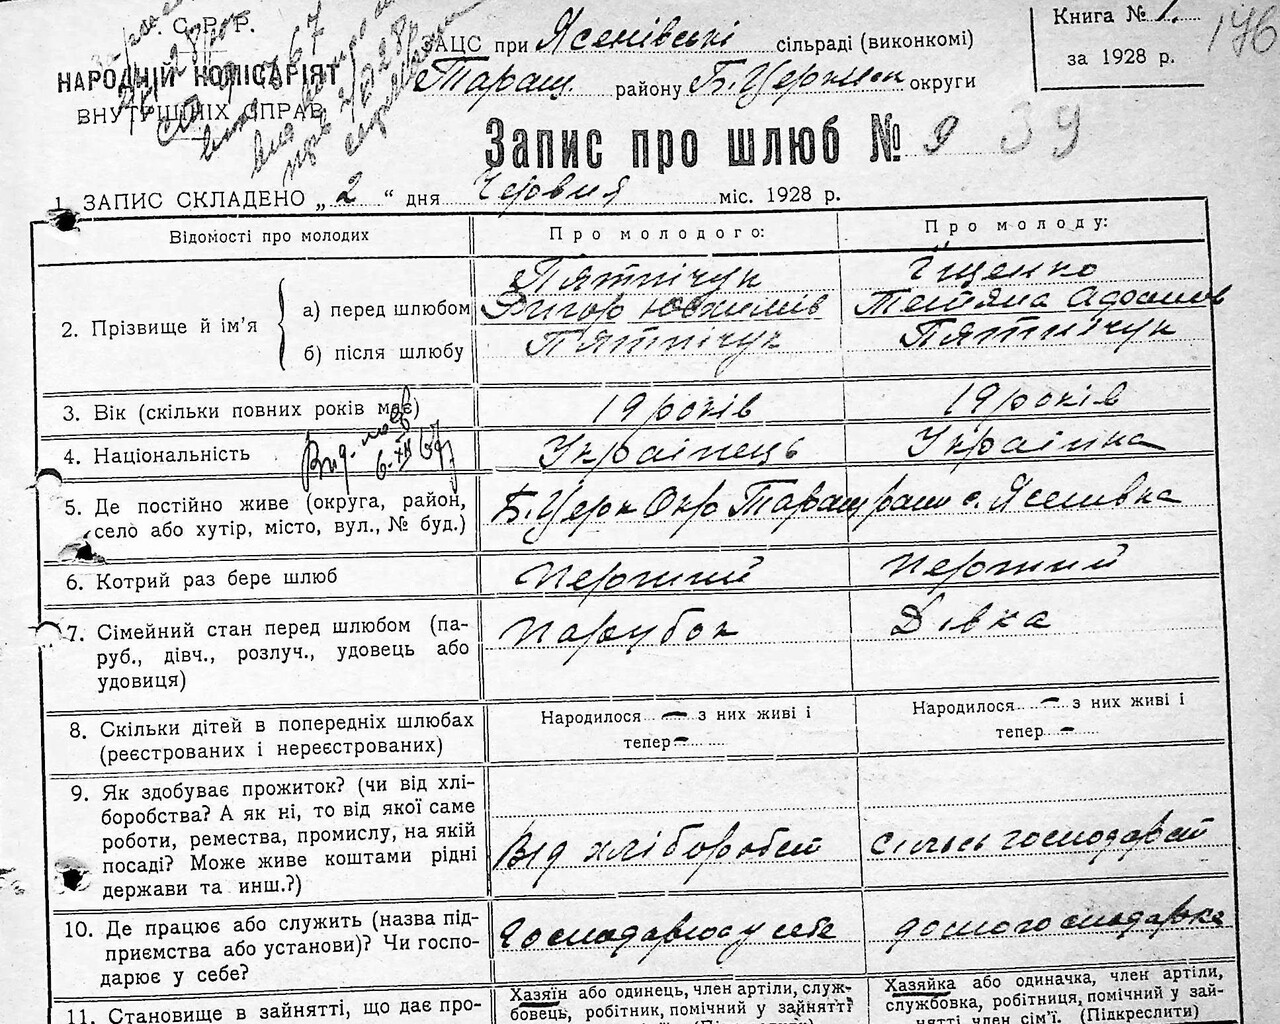 С. Р. Р.
НАРОДНІЙ КОМІСАРІЯТ
ВНУТРІШНІХ СПРАВ
ЗАЦС при Ясенівські сільраді (виконкомі)
Таращ. району Б. Церкнск округи
Книга № 1.
за 1928 р.
196
Запис про шлюб № 9 39
1. ЗАПИС СКЛАДЕНО „ 2 “ дня Червня міс. 1928 р.
Відомості про молодих
Про молодого:
Про молоду:
2. Прізвище й ім’я
а) перед шлюбом
б) після шлюбу
Пятнічук
Григор Юхимів
Пятнічук
Іщенко
Тетяна Адамов
Пятнічук
3. Вік (скільки повних років має)
19 років
19 років
4. Національність
Українець
Українка
Вид. пов
6.XII 67
5. Де постійно живе (округа, район,
село або хутір, місто, вул., № буд.)
Б. Церк Окр Таращ раш с. Ясенівка
6. Котрий раз бере шлюб
Перший
Перший
7. Сімейний стан перед шлюбом (па-
руб., дівч., розлуч., удовець або
удовиця)
Парубок
Дівка
8. Скільки дітей в попередніх шлюбах
(реєстрованих і нереєстрованих)
Народилося — з них живі і
тепер —
Народилося — з них живі і
тепер —
9. Як здобуває прожиток? (чи від хлі-
боробства? А як ні, то від якої саме
роботи, ремества, промислу, на якій
посаді? Може живе коштами рідні
держави та инш.?)
Від хліборобст
сільськ господарст
10. Де працює або служить (назва під-
приємства або установи)? Чи госпо-
дарює у себе?
Господарює у себе
домогосподарка
11. Становище в зайнятті, що дає про-
Хазяїн або одинець, член артіли, служ-
бовець, робітник, помічний у зайнятті
Хазяйка або одиначка, член артіли,
службовка, робітниця, помічний у зай-
нятті член сім’ї. (Підкреслити)